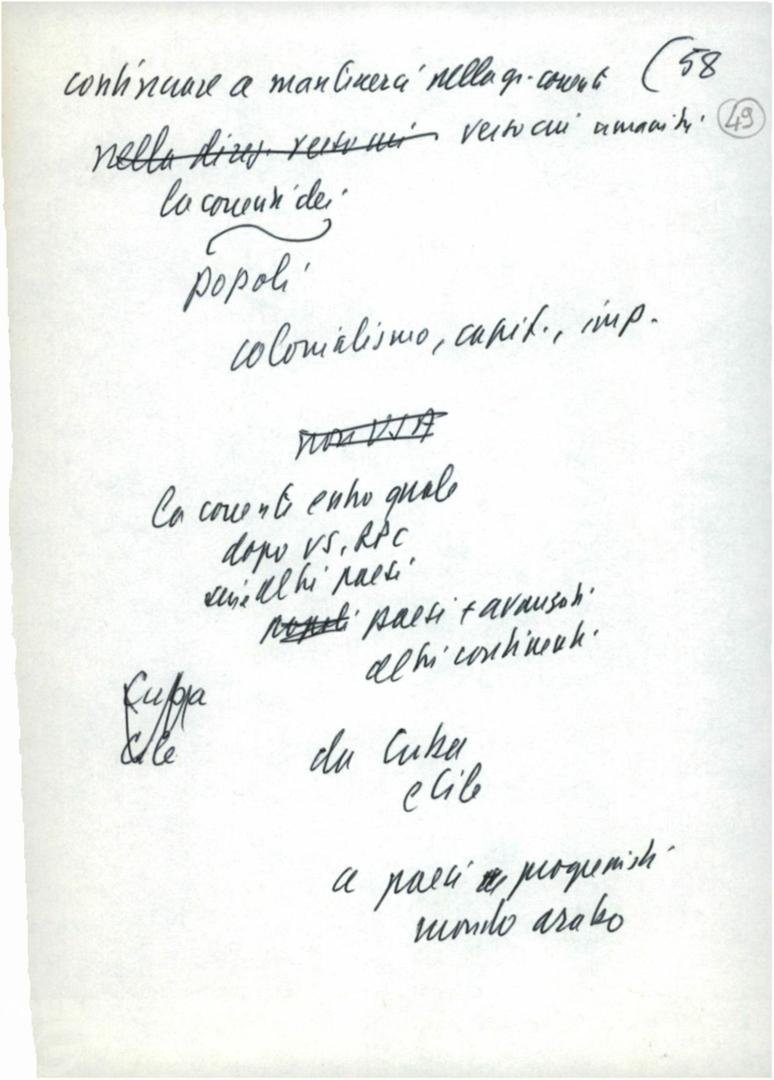 continuare a mantenerci nella gr. corrente (58
nella direz. verso cui verso cui umanità (49)
la corrente dei
popoli
colonialismo, capit., imp.
non USA
la corrente entro quale
dopo US, RPC
serie altri paesi
popoli paesi + avanzati
altri continenti
Cuba
Cile
da Cuba
e Cile
a paesi progressisti
mondo arabo